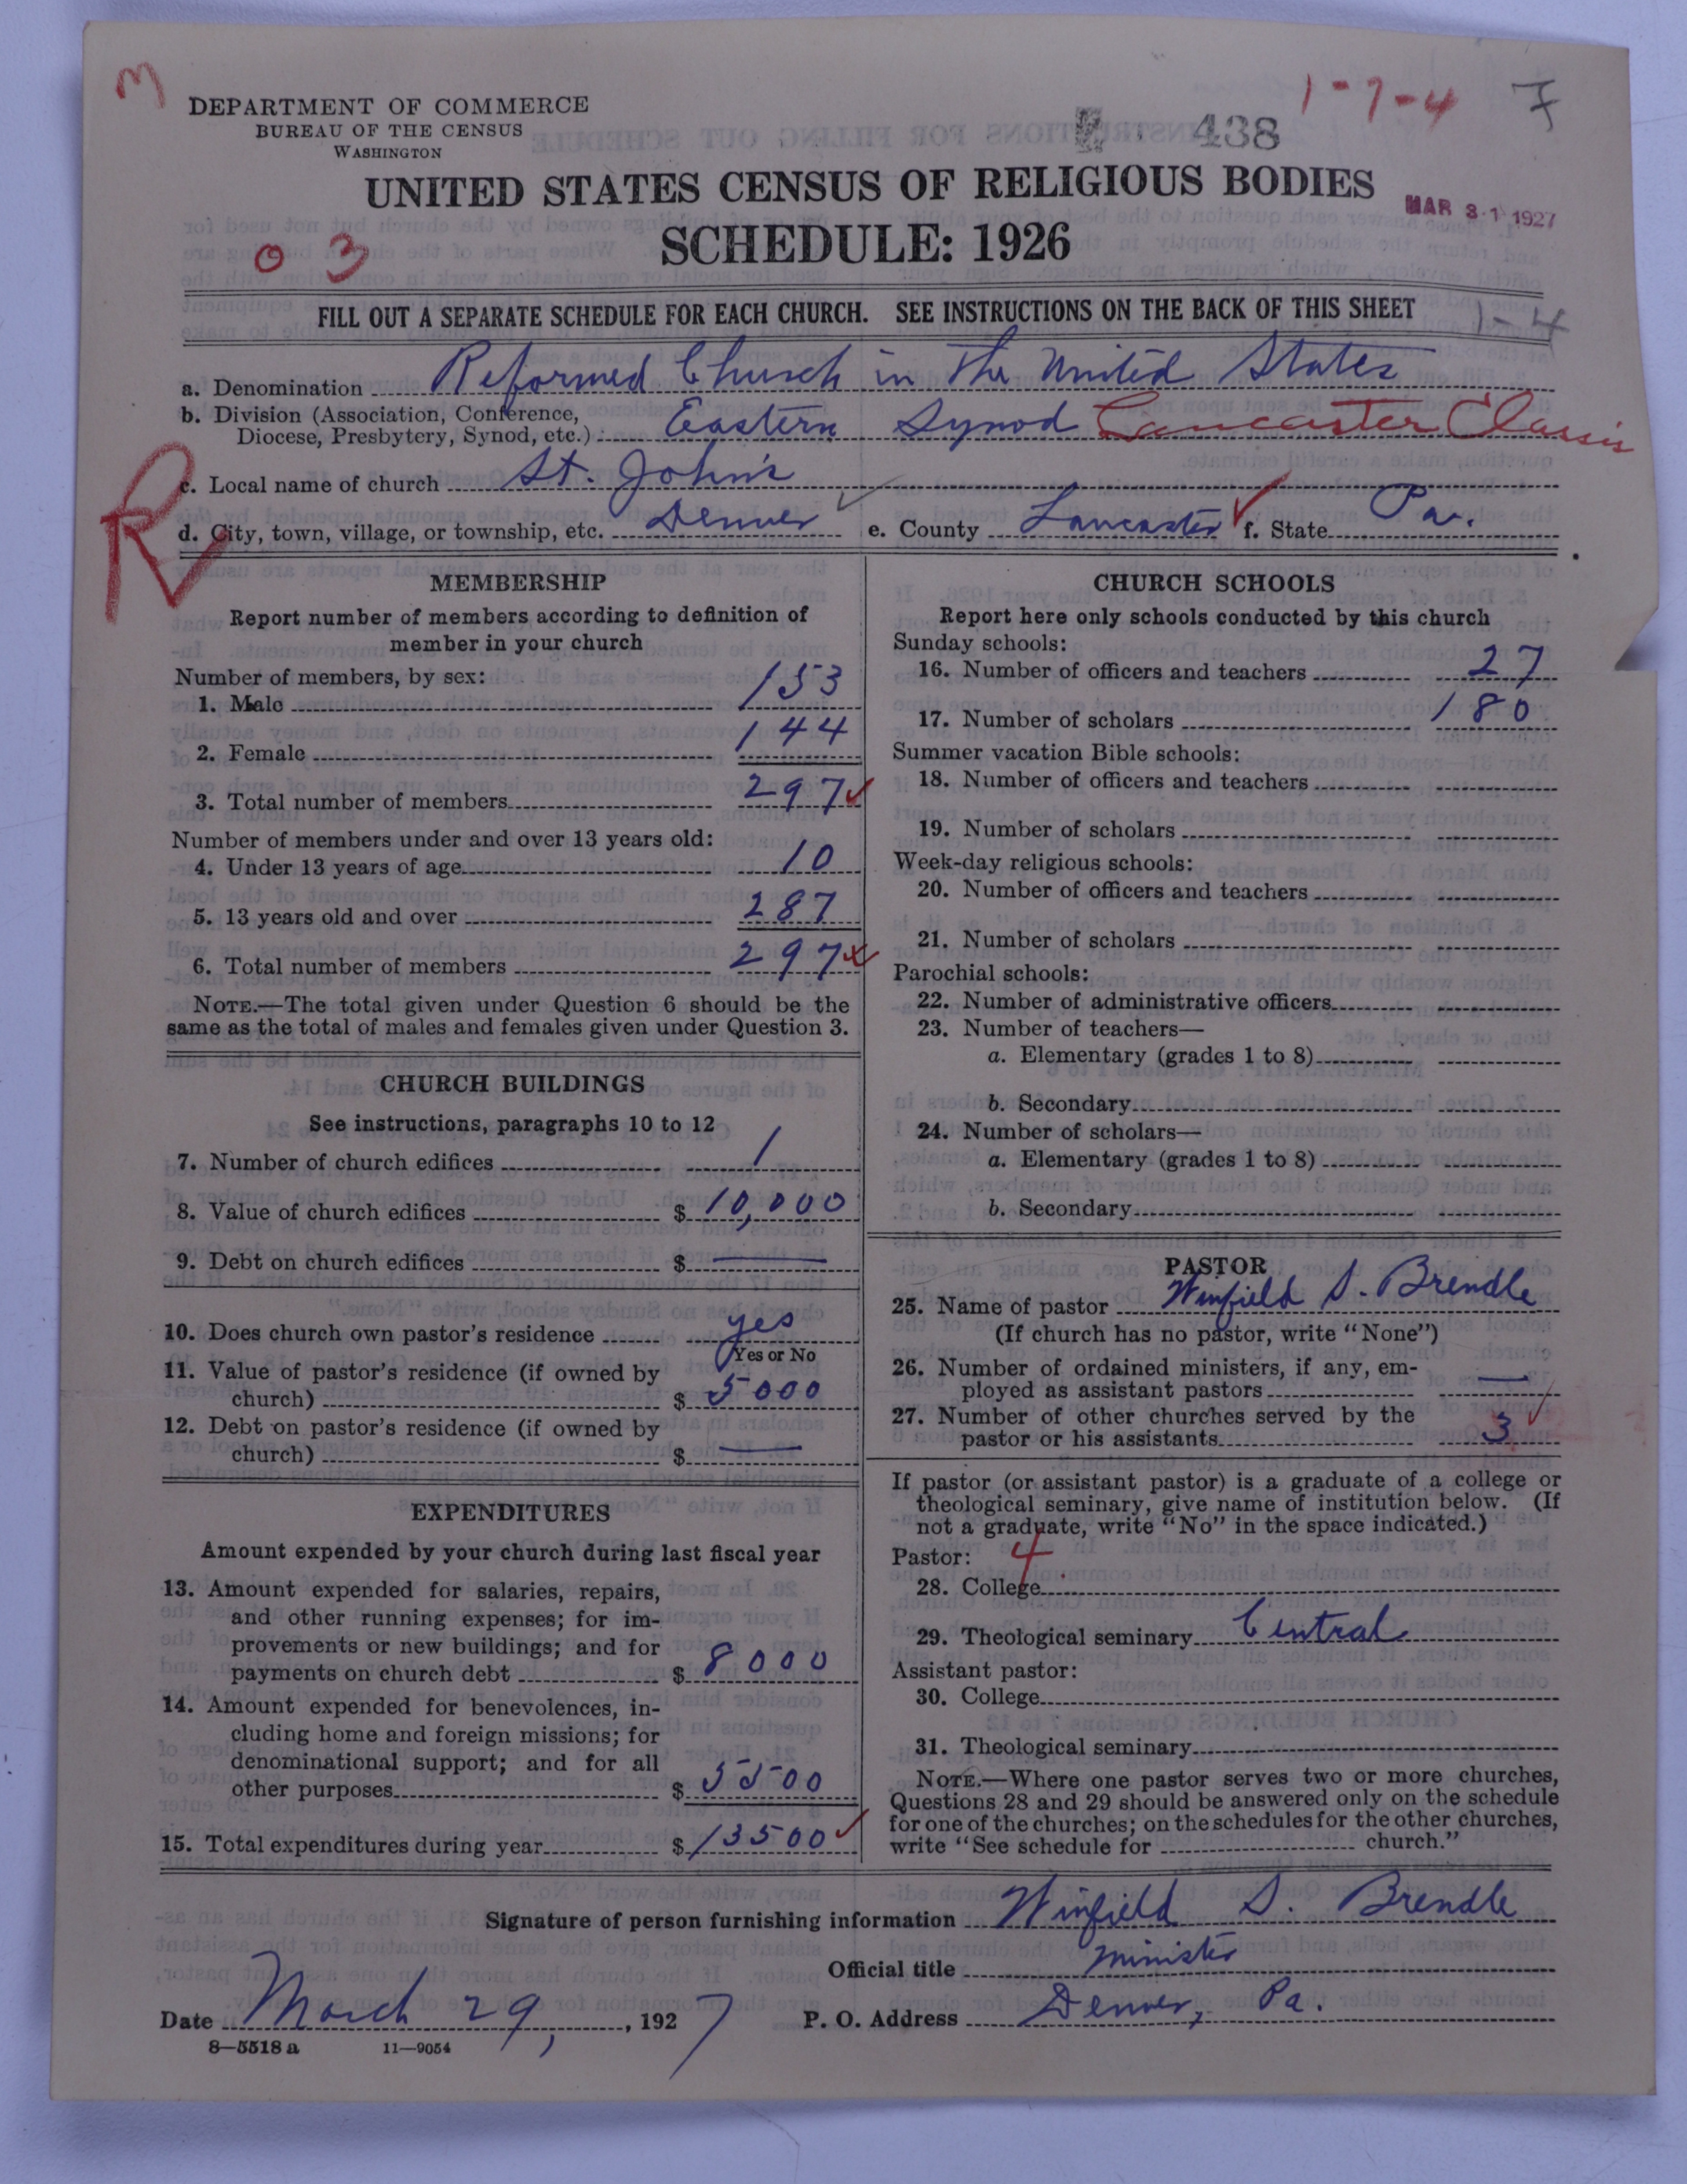 m
1-7-4 7
DEPARTMENT OF COMMERCE
BUREAU OF THE CENSUS
WASHINGTON
438
UNITED STATES CENSUS OF RELIGIOUS BODIES
MAR 31 1927
SCHEDULE: 1926
0 3
FILL OUT A SEPARATE SCHEDULE FOR EACH CHURCH. SEE INSTRUCTIONS ON THE BACK OF THIS SHEET
1-4
a. Denomination Reformed Church in the United States
b. Division (Association, Conference,
Diocese, Presbytery, Synod, etc.) Eastern Synod Lancaster Classis
R
c. Local name of church St. John's
d. City, town, village, or township, etc. Denver e. County Lancaster f. State Pa.
MEMBERSHIP
Report number of members according to definition of
member in your church
Number of members, by sex:
1. Male 153
2. Female 144
3. Total number of members 297
Number of members under and over 13 years old:
4. Under 13 years of age 10
5. 13 years old and over 287
6. Total number of members 297
NOTE.—The total given under Question 6 should be the
same as the total of males and females given under Question 3.
CHURCH BUILDINGS
See instructions, paragraphs 10 to 12
7. Number of church edifices 1
8. Value of church edifices $ 10,000
9. Debt on church edifices $ —
10. Does church own pastor's residence yes
Yes or No
11. Value of pastor's residence (if owned by
church) $ 5000
12. Debt on pastor's residence (if owned by
church) $ —
EXPENDITURES
Amount expended by your church during last fiscal year
13. Amount expended for salaries, repairs,
and other running expenses; for im-
provements or new buildings; and for
payments on church debt $ 8000
14. Amount expended for benevolences, in-
cluding home and foreign missions; for
denominational support; and for all
other purposes $ 5500
15. Total expenditures during year $ 13500
CHURCH SCHOOLS
Report here only schools conducted by this church
Sunday schools:
16. Number of officers and teachers 27
17. Number of scholars 180
Summer vacation Bible schools:
18. Number of officers and teachers
19. Number of scholars
Week-day religious schools:
20. Number of officers and teachers
21. Number of scholars
Parochial schools:
22. Number of administrative officers
23. Number of teachers—
a. Elementary (grades 1 to 8)
b. Secondary
24. Number of scholars—
a. Elementary (grades 1 to 8)
b. Secondary
PASTOR
25. Name of pastor Winfield S. Brendle
(If church has no pastor, write "None")
26. Number of ordained ministers, if any, em-
ployed as assistant pastors —
27. Number of other churches served by the
pastor or his assistants 3
If pastor (or assistant pastor) is a graduate of a college or
theological seminary, give name of institution below. (If
not a graduate, write "No" in the space indicated.)
Pastor: 4
28. College
29. Theological seminary Central
Assistant pastor:
30. College
31. Theological seminary
NOTE.—Where one pastor serves two or more churches,
Questions 28 and 29 should be answered only on the schedule
for one of the churches; on the schedules for the other churches,
write "See schedule for church."
Signature of person furnishing information Winfield S. Brendle
Official title Minister
Date March 29, 1927 P. O. Address Denver, Pa.
8—5518 a 11—9054